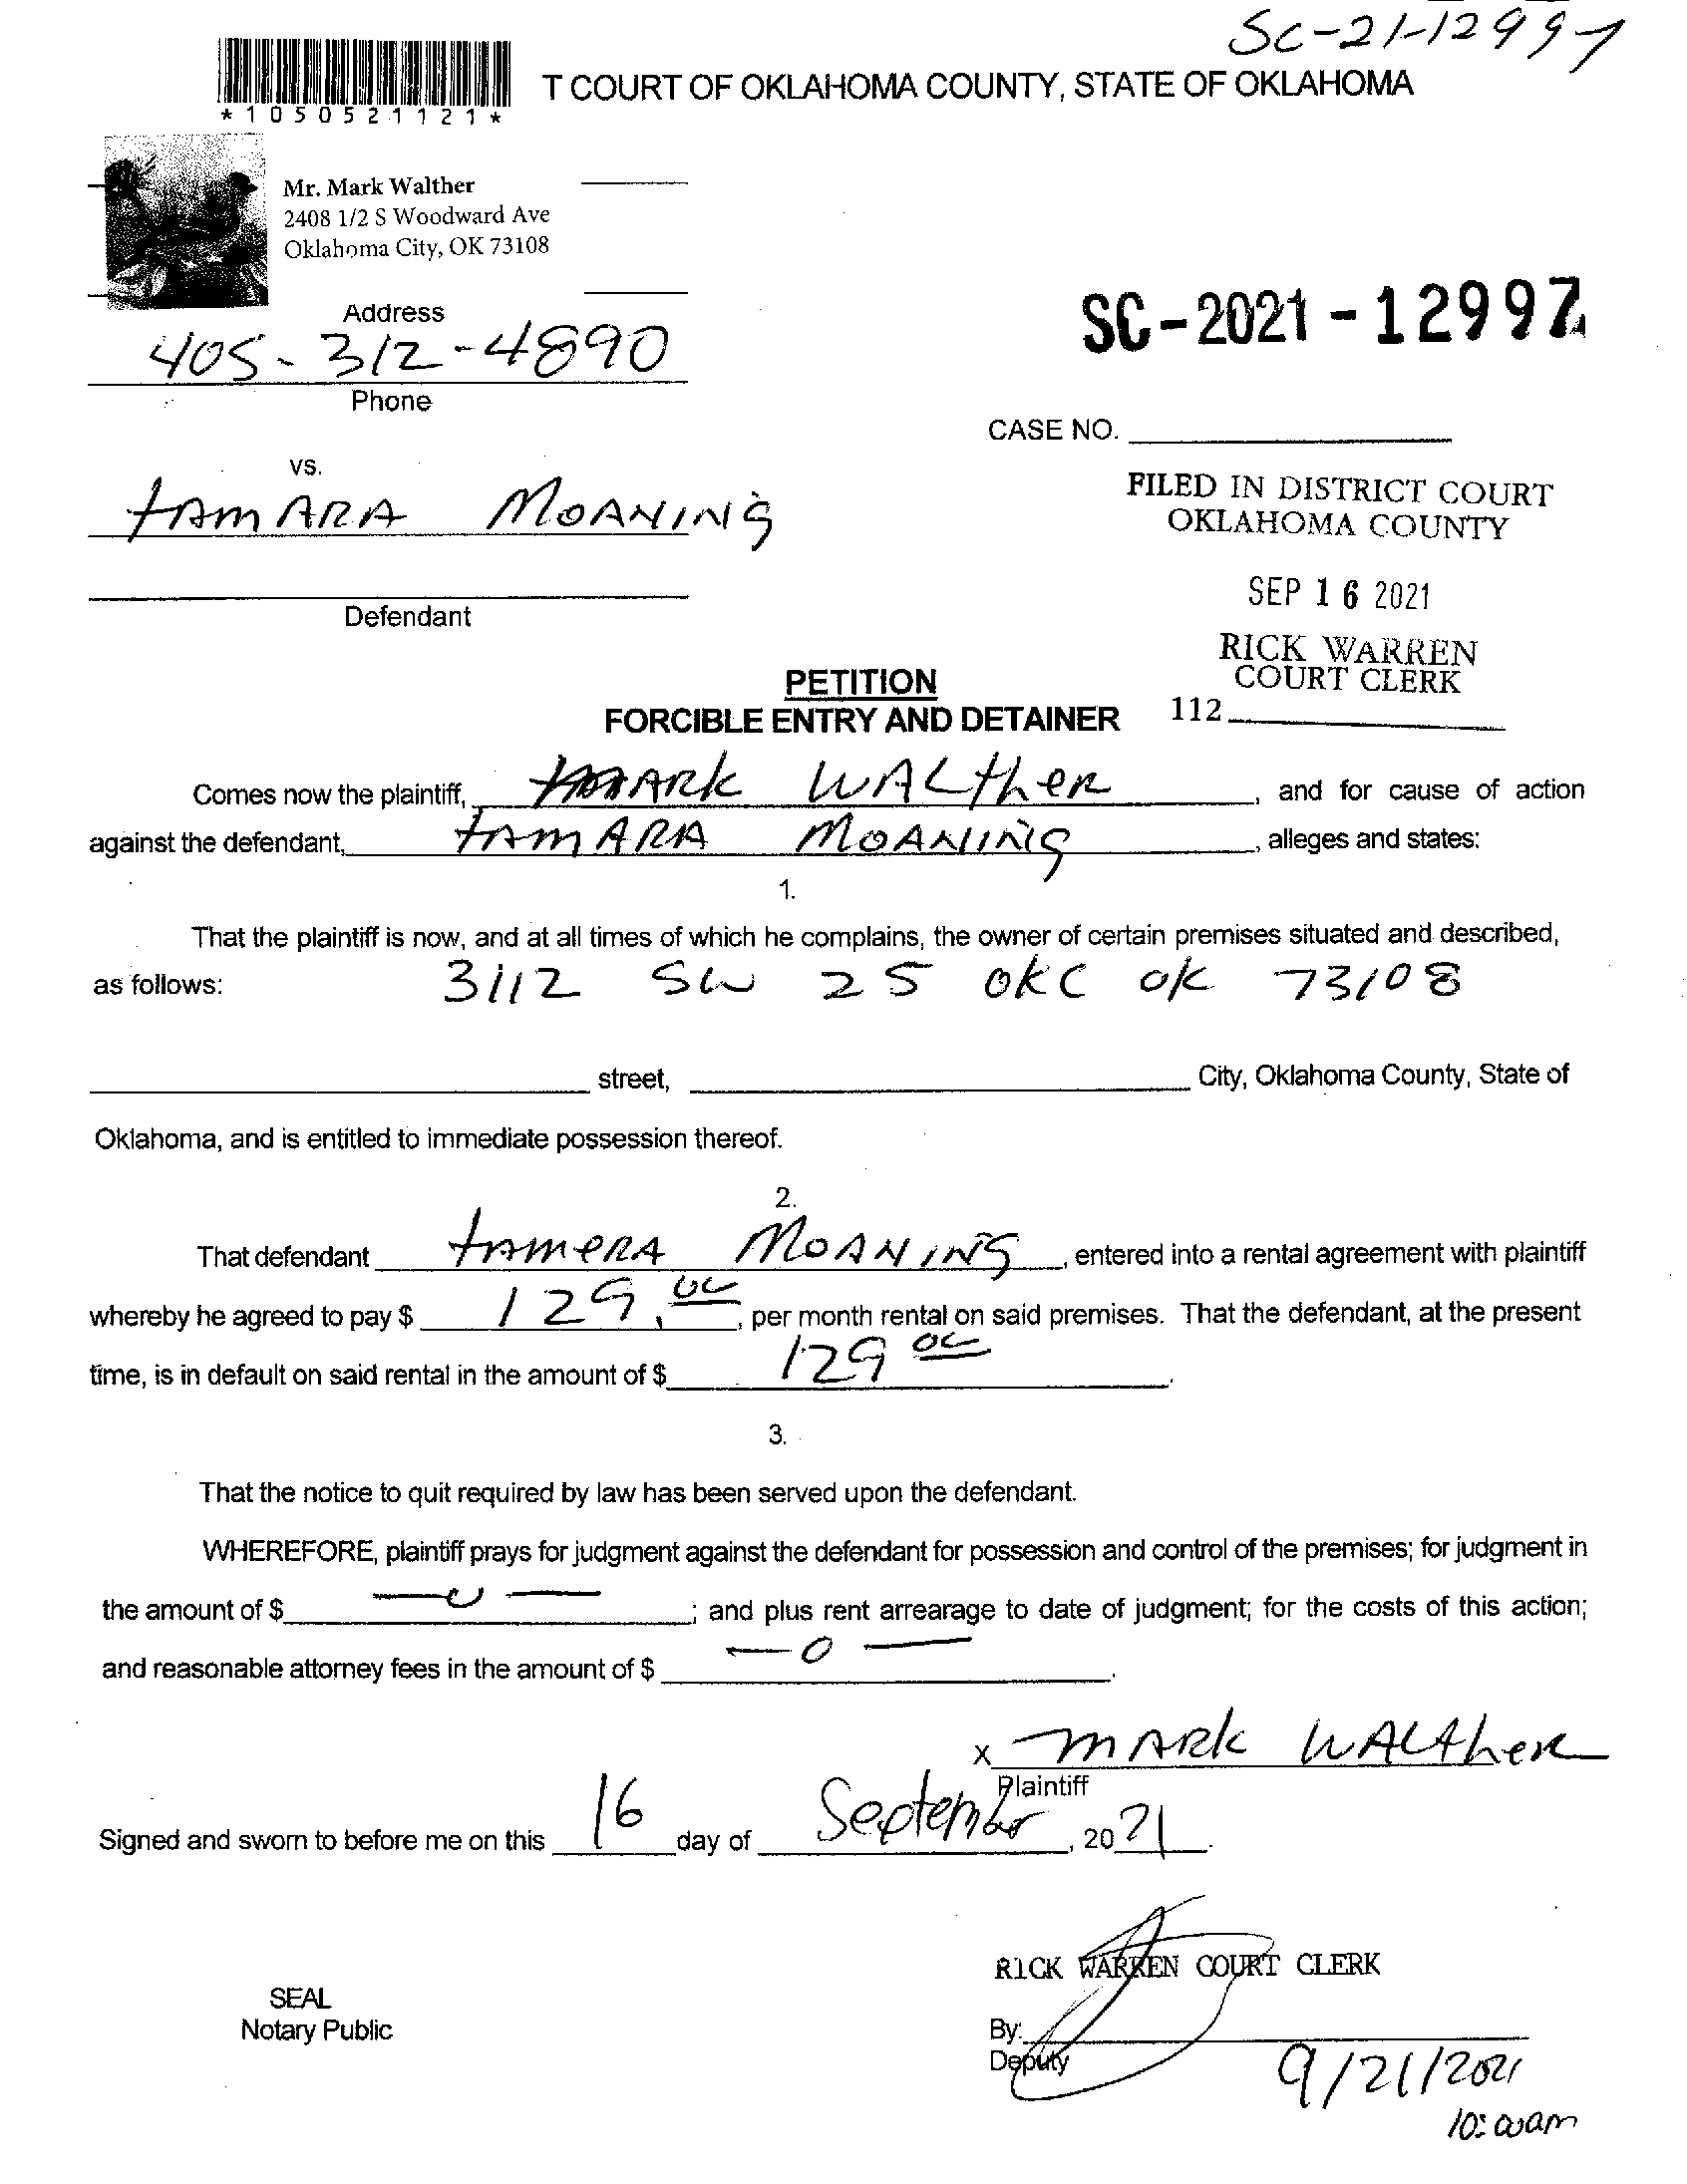 SC-21-12997
T COURT OF OKLAHOMA COUNTY, STATE OF OKLAHOMA
*1050521121*
Mr. Mark Walther
2408 1/2 S Woodward Ave
Oklahoma City, OK 73108
Address
SC-2021-12997
405-312-4890
Phone
CASE NO.
vs.
tAmARA MOANING
FILED IN DISTRICT COURT
OKLAHOMA COUNTY
SEP 16 2021
Defendant
RICK WARREN
COURT CLERK
112
PETITION
FORCIBLE ENTRY AND DETAINER
Comes now the plaintiff, mARk WALtheR, and for cause of action
against the defendant, tAmARA MOANING, alleges and states:
1.
That the plaintiff is now, and at all times of which he complains, the owner of certain premises situated and described,
as follows: 3112 SW 25 OKC OK 73108
street, City, Oklahoma County, State of
Oklahoma, and is entitled to immediate possession thereof.
2.
That defendant tAmeRA MOANING, entered into a rental agreement with plaintiff
whereby he agreed to pay $ 129.00, per month rental on said premises. That the defendant, at the present
time, is in default on said rental in the amount of $ 129 00.
3.
That the notice to quit required by law has been served upon the defendant.
WHEREFORE, plaintiff prays for judgment against the defendant for possession and control of the premises; for judgment in
the amount of $ —0—; and plus rent arrearage to date of judgment; for the costs of this action;
and reasonable attorney fees in the amount of $ —0—.
x mARk WALtheR
Plaintiff
Signed and sworn to before me on this 16 day of September, 2021.
RICK WARREN COURT CLERK
SEAL
Notary Public
By:
Deputy
9/21/2021
10:00am